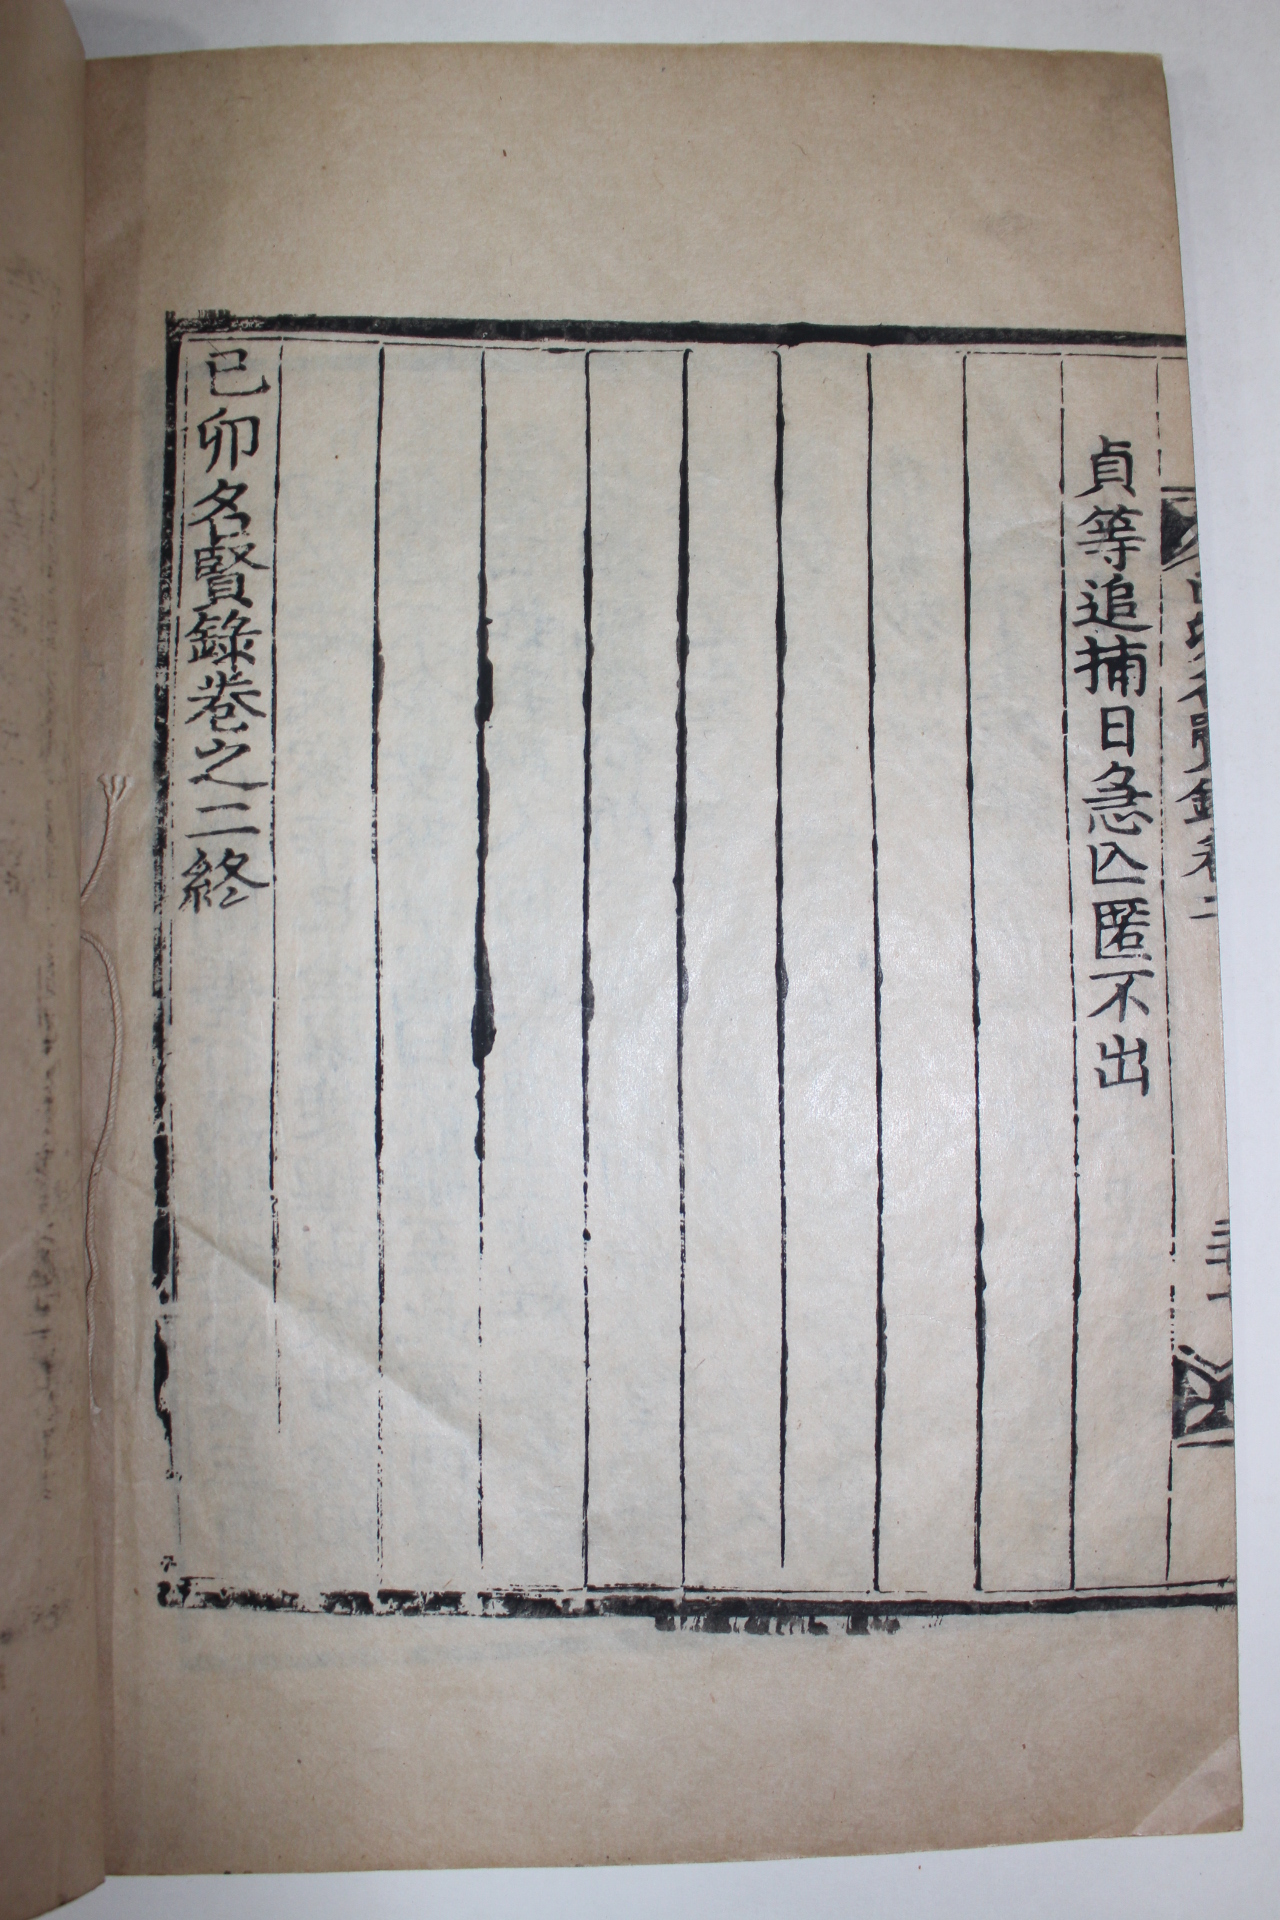 己卯名賢錄卷二
三十
貞等追捕日急亾匿不出
己卯名賢錄卷之二終